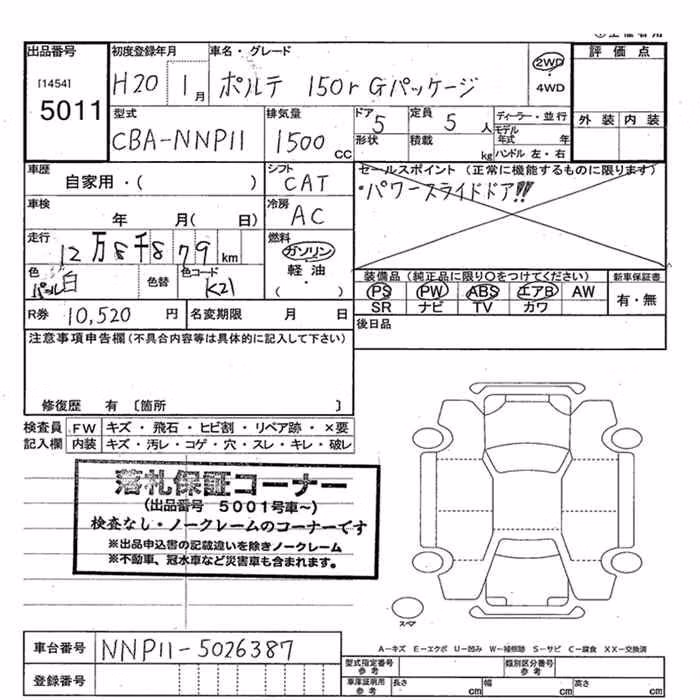 出品番号 初度登録年月 車名・グレード 2WD 評価点
[1454] 5011 H20 1月 ポルテ 150r Gパッケージ 4WD
外装 内装
型式 排気量 ドア 5 定員 5人 ディーラー・並行
CBA-NNP11 1500cc 形状 積載 kg モデル年式 年
ハンドル 左・右
車歴 自家用・( ) シフト CAT セールスポイント (正常に機能するものに限ります)
・パワースライドドア!!
車検 年 月( 日) 冷房 AC
走行 12万8千879km 燃料 ガソリン
軽油
( )
色 パール白 色替 色コード K21
装備品(純正品に限り○をつけてください) 新車保証書
PS PW ABS エアB AW 有・無
SR ナビ TV カワ
R券 10,520円 名変期限 月 日 後日品
注意事項申告欄(不具合内容等は具体的に記入して下さい)
修復歴 有〔箇所 〕
検査員 FW キズ・飛石・ヒビ割・リペア跡・×要
記入欄 内装 キズ・汚レ・コゲ・穴・スレ・キレ・破レ
落札保証コーナー
(出品番号 5001号車~)
検査なし・ノークレームのコーナーです
※出品申込書の記載違いを除きノークレーム
※不動車、冠水車など災害車も含まれます。
スペア
A-キズ E-エクボ U-凹み W-補修跡 S-サビ C-腐食 XX-交換済
車台番号 NNP11-5026387
登録番号
型式指定番号 参考 類別区分番号 参考
車庫証明用 参考 長さ cm 幅 cm 高さ cm